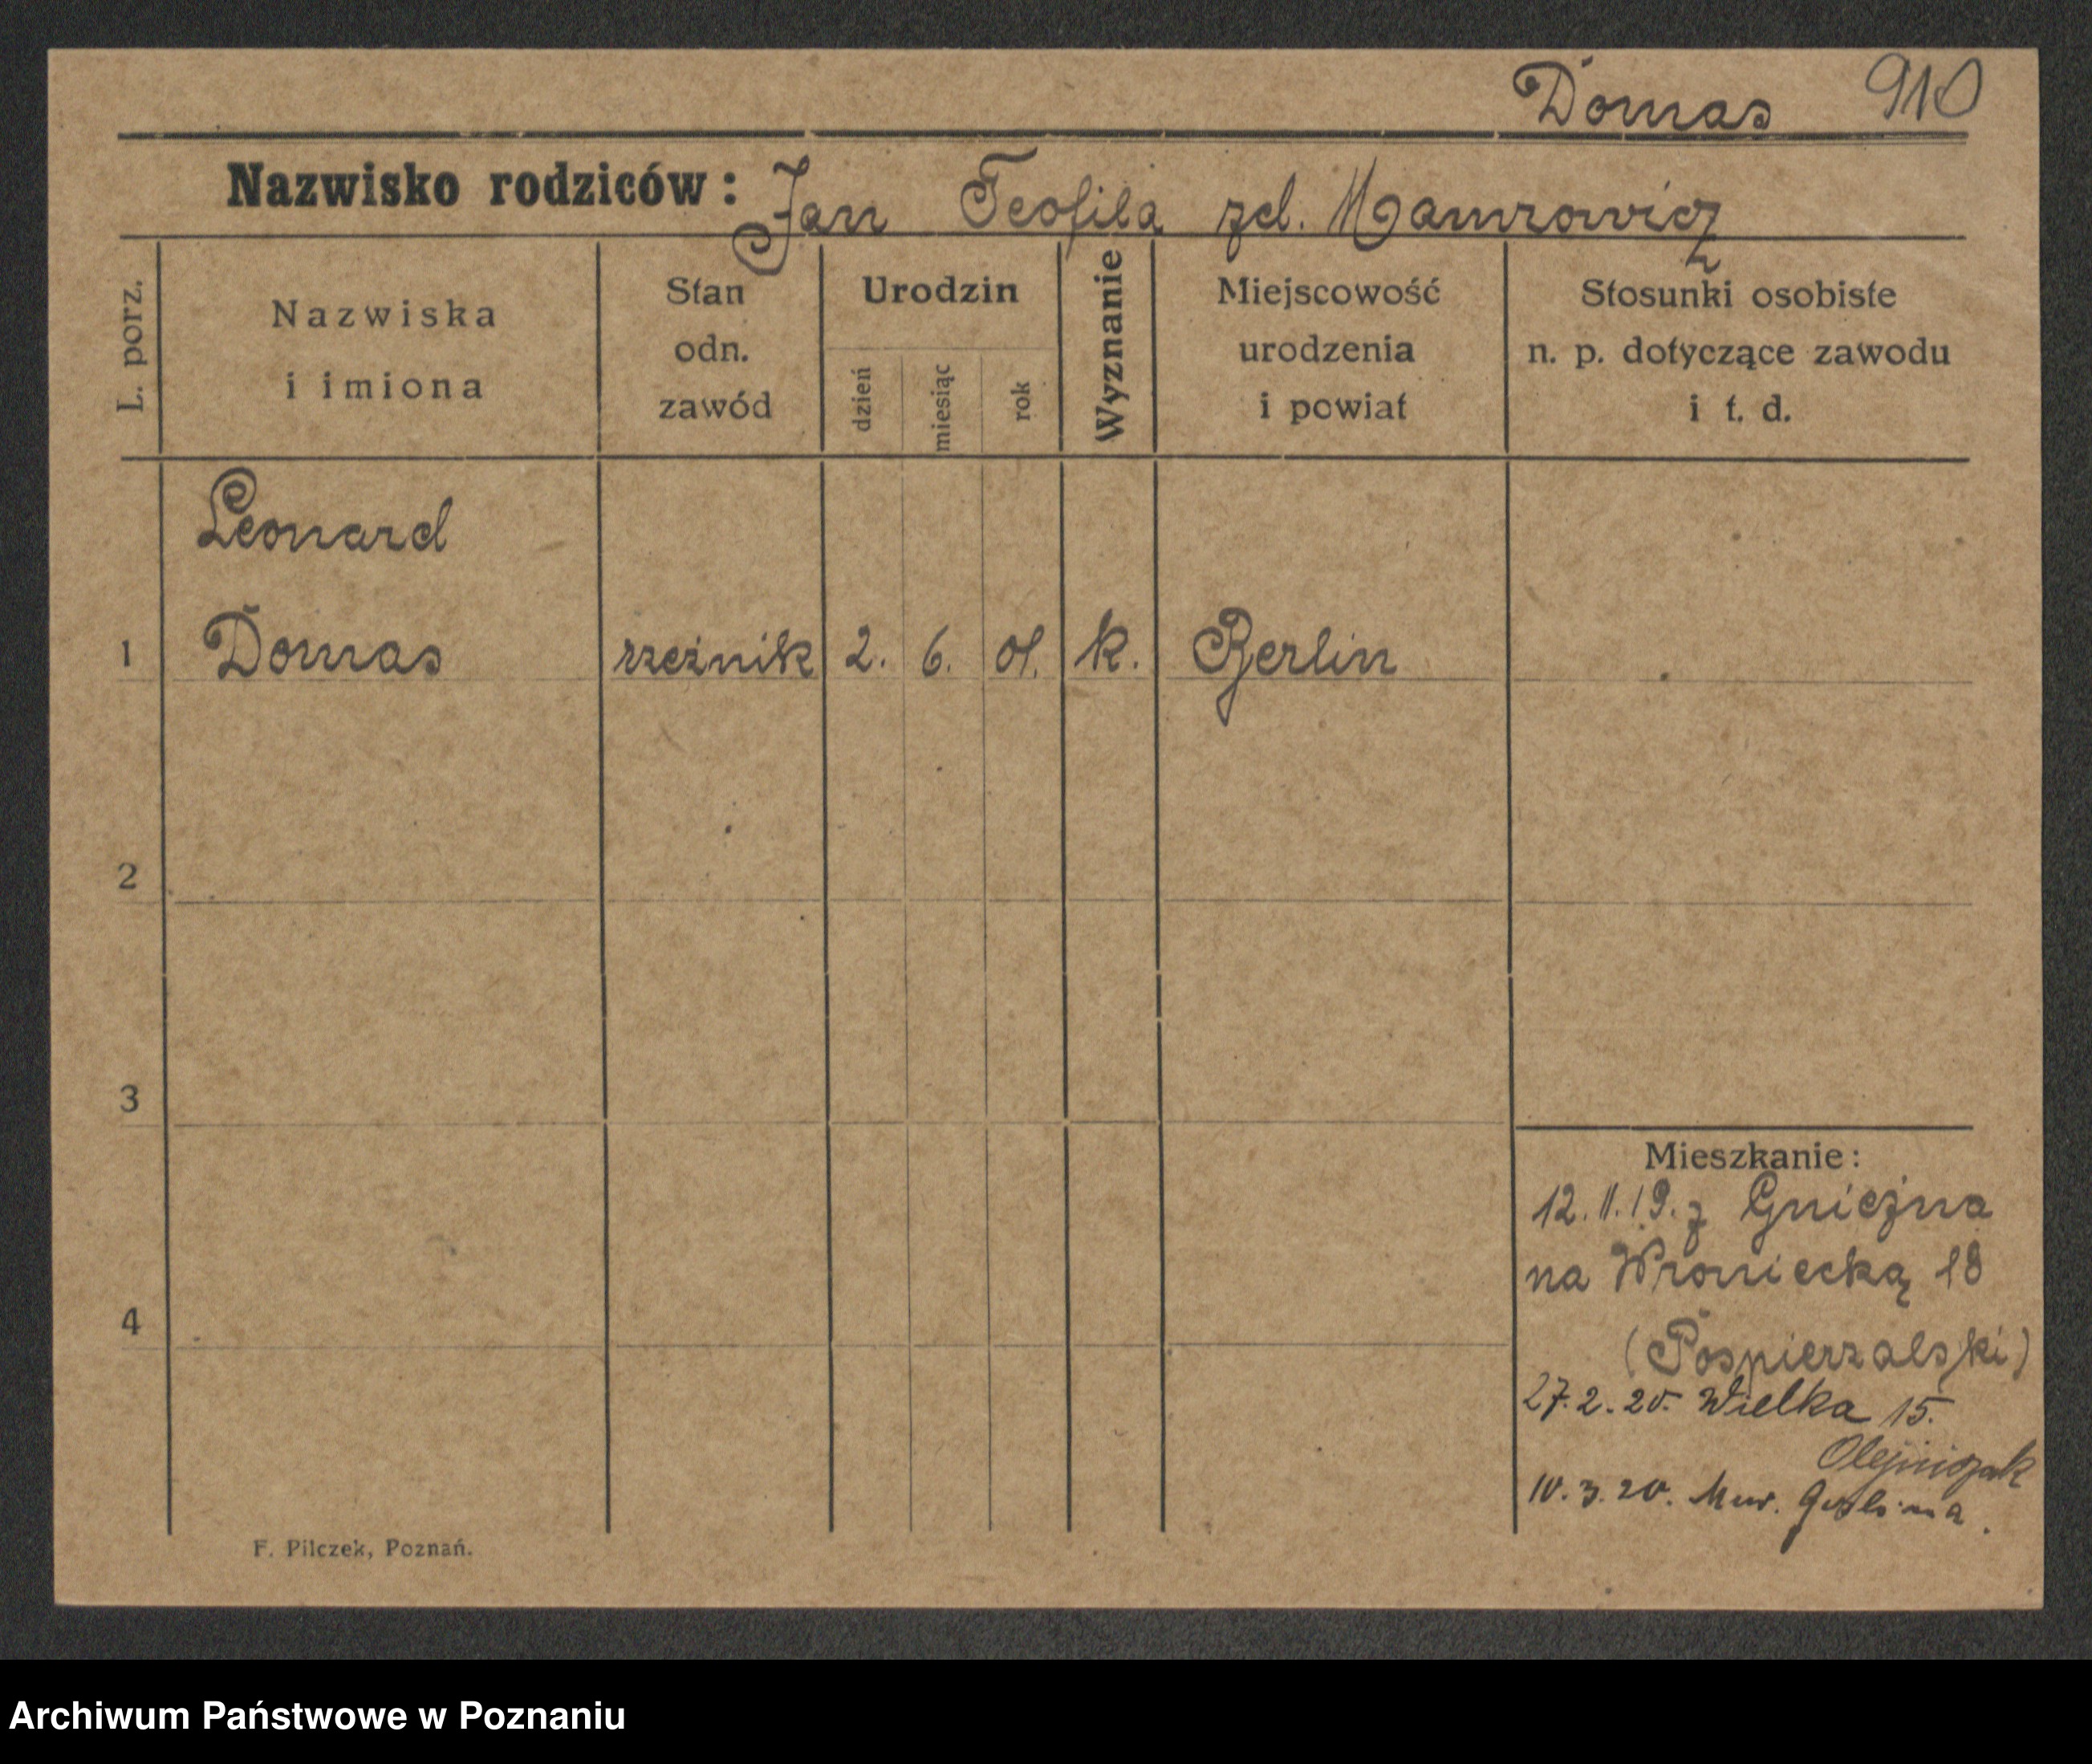 Domas 910
Nazwisko rodziców: Jan Teofila zd. Mamrowicz
L. porz.
Nazwiska
i imiona
Stan
odn.
zawód
Urodzin
dzień
miesiąc
rok
Wyznanie
Miejscowość
urodzenia
i powiat
Stosunki osobiste
n. p. dotyczące zawodu
i t. d.
Leonard
1 Domas rzeźnik 2. 6. 01. k. Berlin
2
3
4
Mieszkanie:
12.11.19. z Gniezna
na Wroniecką 18
(Pospierzalski)
27.2.20. Wielka 15.
Olejniczak
10.3.20. Mur. Goślina.
F. Pilczek, Poznań.
Archiwum Państwowe w Poznaniu